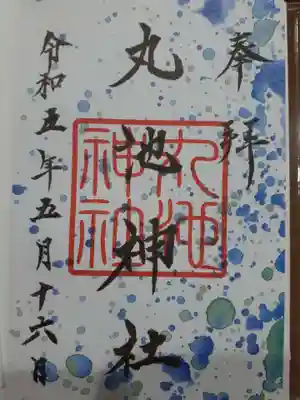 奉拝
丸池神社
丸池
神社
令和五年五月十六日